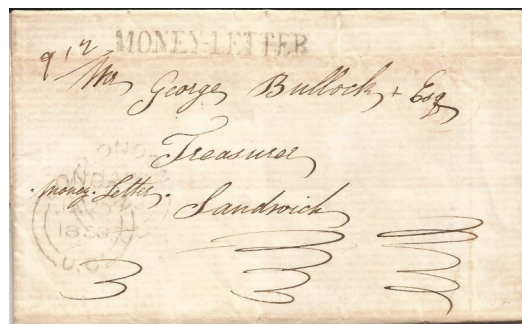 MONEY-LETTER
9½
Mr George Bullock, Esq
Treasurer
money. Letter.
Sandwich
U.C.